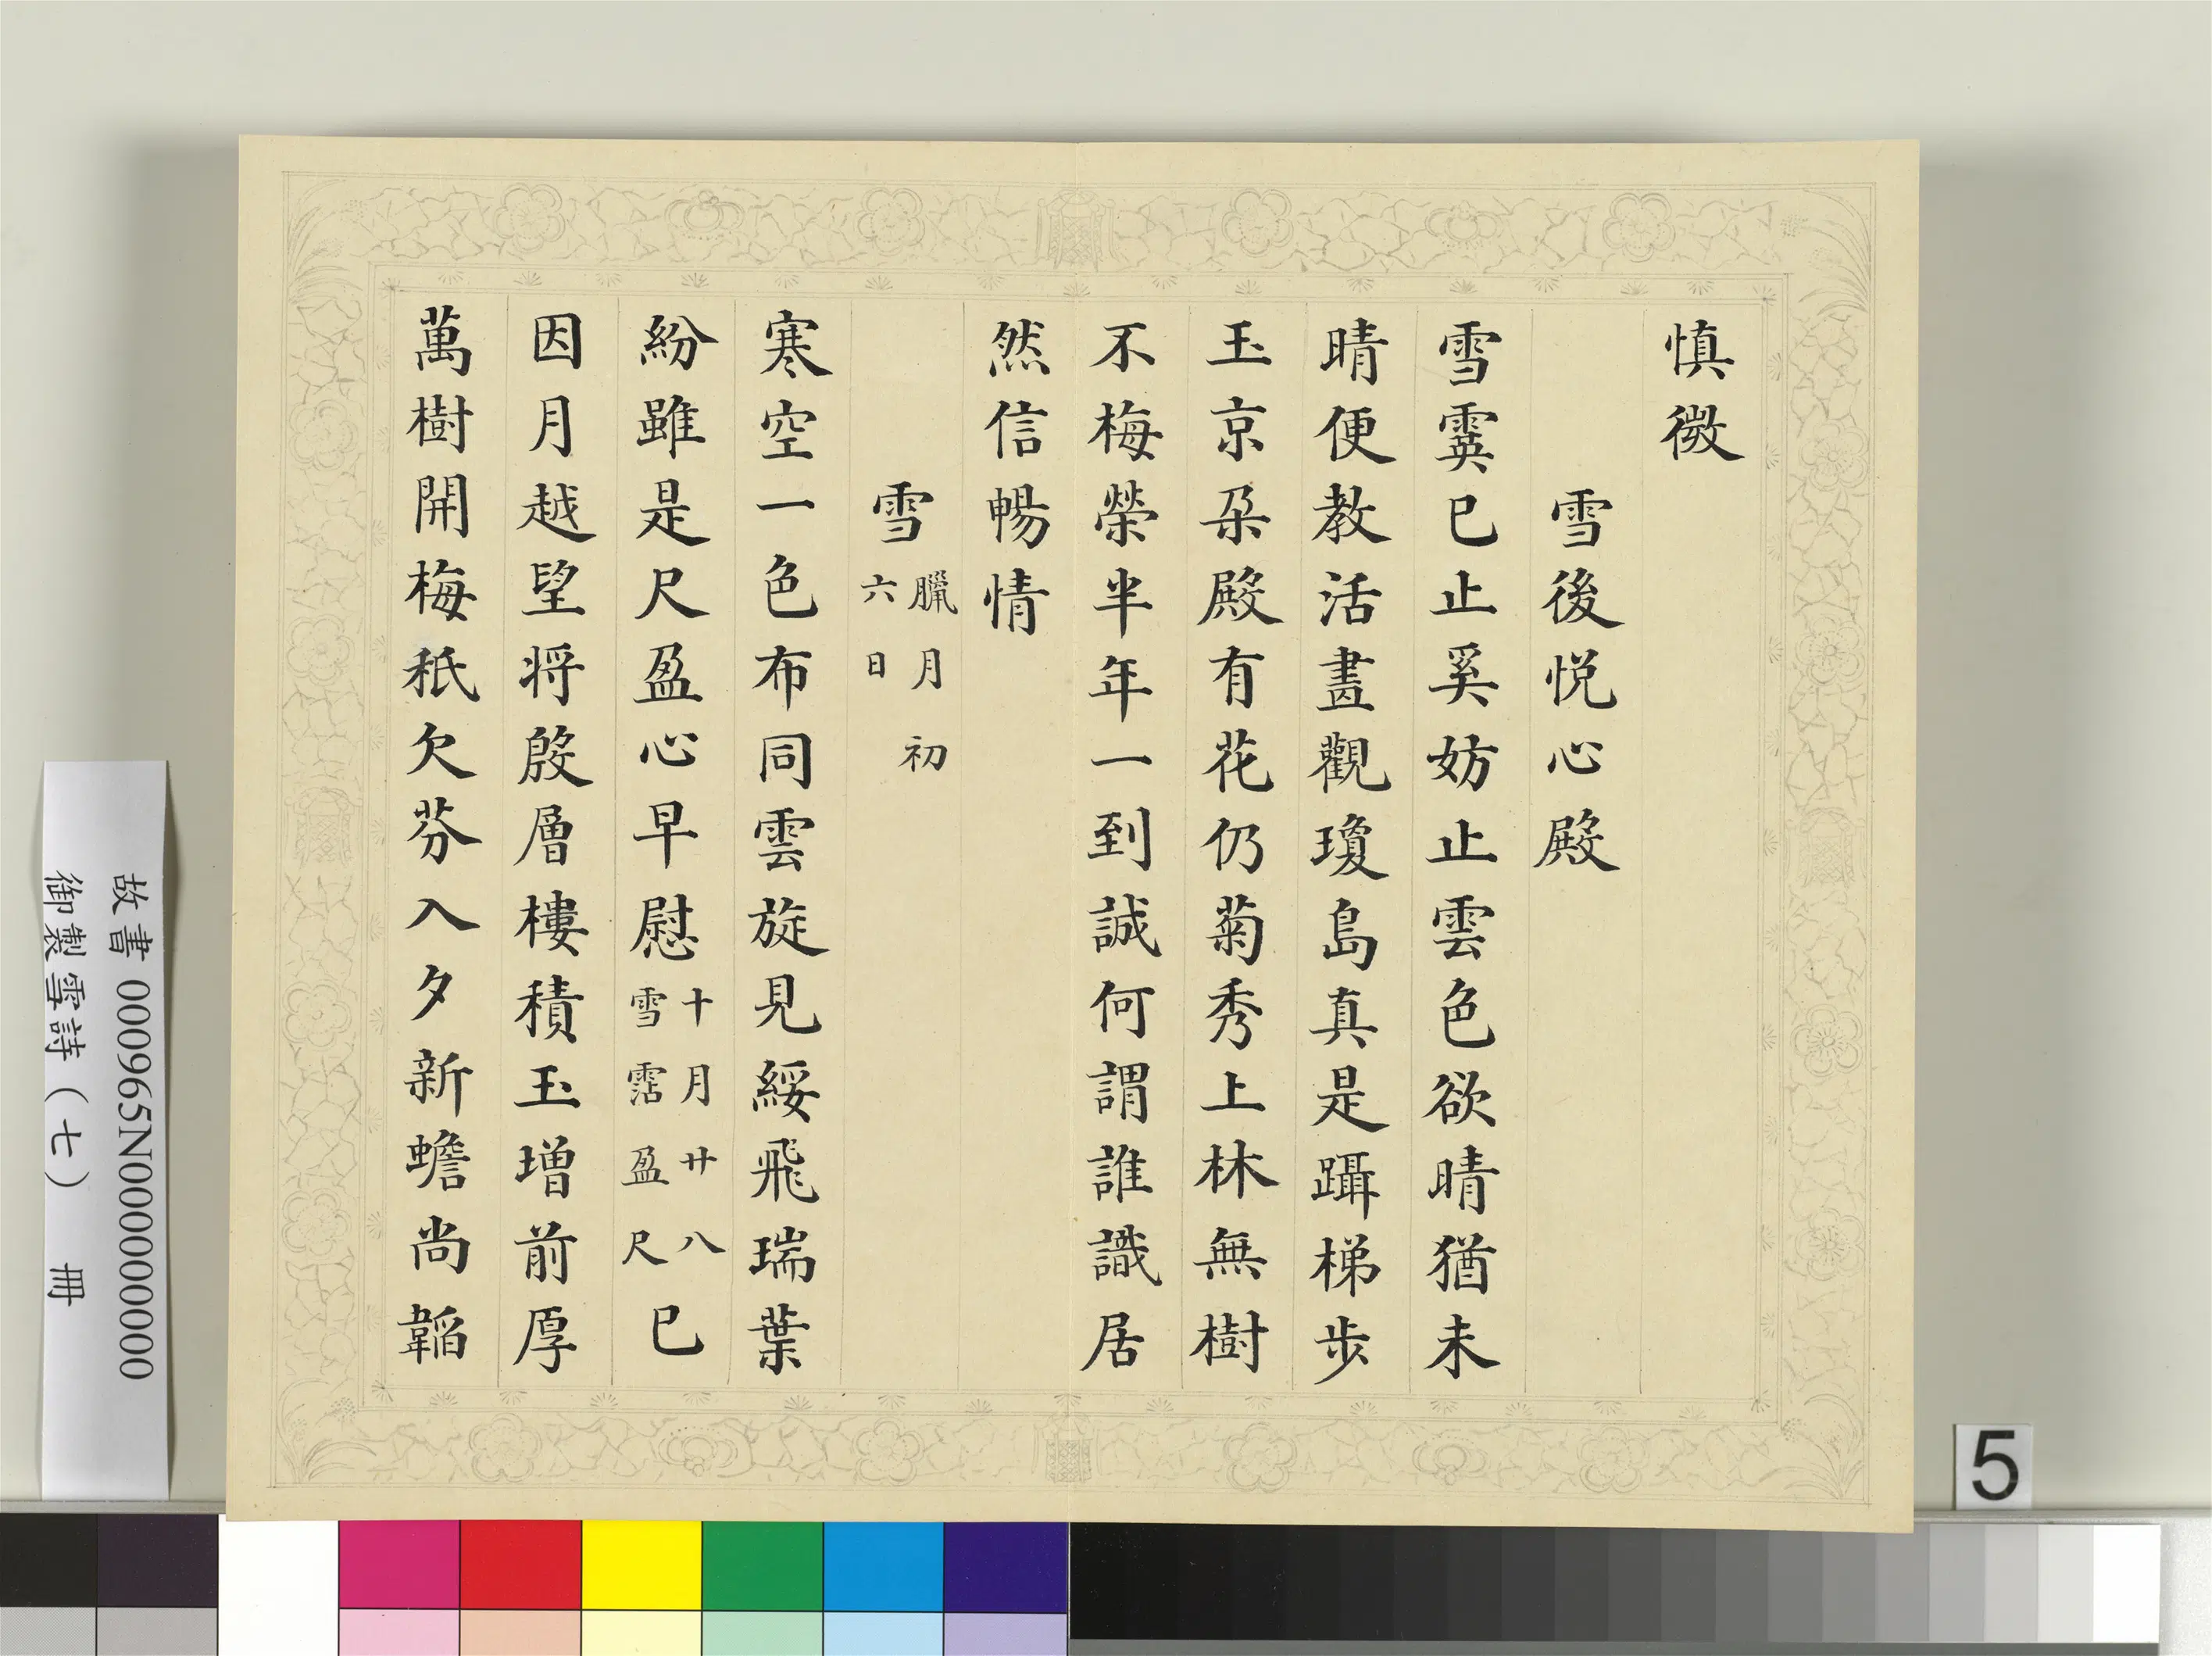 慎微
雪後悅心殿
雪霙已止奚妨止雲色欲晴猶未
晴便教活畫觀瓊島真是躡梯步
玉京朵殿有花仍菊秀上林無樹
不梅榮半年一到誠何謂誰識居
然信暢情
雪臘月初
六日
寒空一色布同雲旋見綏飛瑞葉
紛雖是尺盈心早慰十月廿八
雪霑盈尺已
因月越望將殷層樓積玉增前厚
萬樹開梅秖欠芬入夕新蟾尚韜
故書 000965N000000000
御製雪詩（七） 冊
5